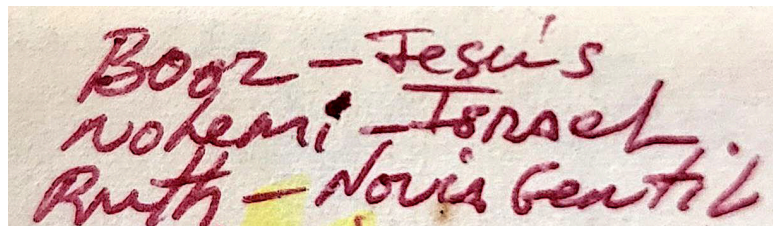 Booz - Jesús
Nohemi - Israel
Ruth - Novia Gentil